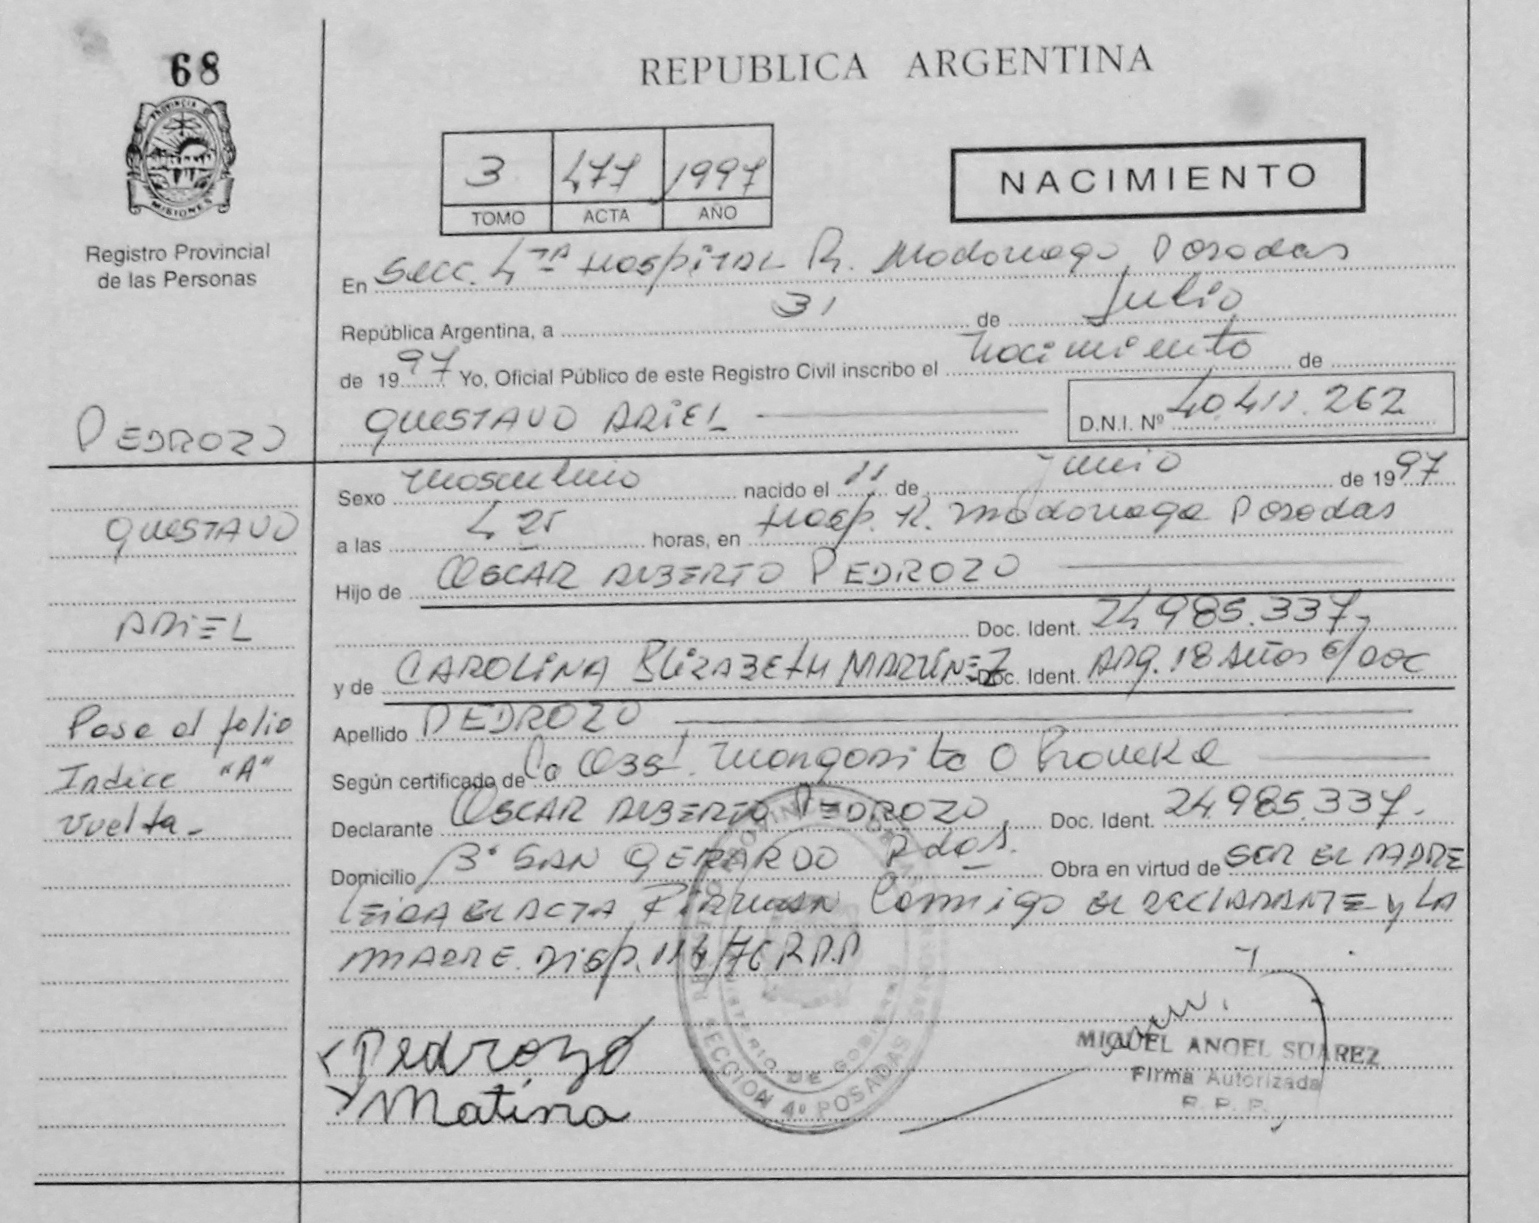 68
PROVINCIA DE
MISIONES
Registro Provincial
de las Personas
REPUBLICA ARGENTINA
3 477 1997
TOMO ACTA AÑO
NACIMIENTO
En Secc. 4TA Hospital R. Madariaga, Posadas
República Argentina, a 31 de Julio
de 1997 Yo, Oficial Público de este Registro Civil inscribo el nacimiento de
GUSTAVO ARIEL D.N.I. Nº 40.411.262
PEDROZO
Sexo masculino nacido el 11 de junio de 1997
GUSTAVO
a las 4 25 horas, en Hosp. R. Madariaga Posadas
Hijo de OSCAR ALBERTO PEDROZO
ARIEL
Doc. Ident. 24.985.337,
y de CAROLINA ELIZABETH MARTINEZ Doc. Ident. ARG. 18 AÑOS S/DOC
Apellido PEDROZO
Pase al folio
Indice "A"
vuelta-
Según certificado de La Obst. Margarita
Declarante OSCAR ALBERTO PEDROZO, Doc. Ident. 24.985.337.
Domicilio Bº SAN GERARDO Pdas. Obra en virtud de SER EL PADRE
LEIDA EL ACTA FIRMAN Conmigo EL DECLARANTE y LA
MADRE. DISP. 114/76 R.P.P
REGISTRO PROVINCIAL DE LAS PERSONAS
MINISTERIO DE GOBIERNO
SECCION 4º POSADAS
Pedrozo
MIGUEL ANGEL SUAREZ
Firma Autorizada
R. P. P.